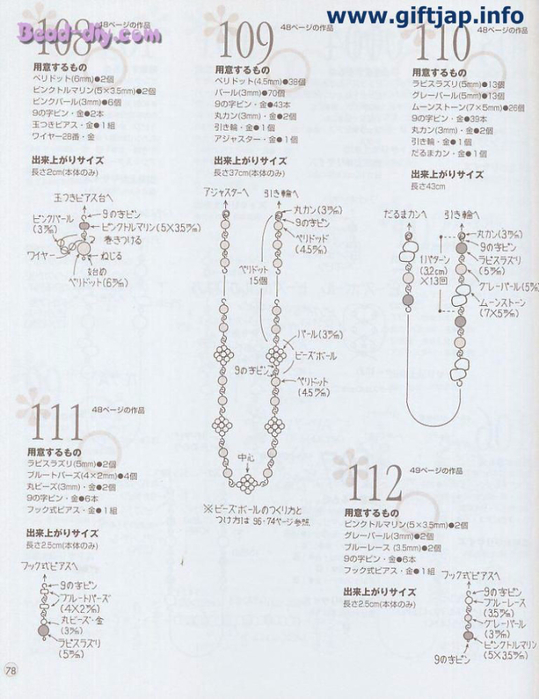 www.giftjap.info
Bead-diy.com
108
48ページの作品
用意するもの
ペリドット(6mm)●2個
ピンクトルマリン(5×3.5mm)●2個
ピンクパール(3mm)●6個
9の字ピン・金●2本
玉つきピアス・金●1組
ワイヤー28番・金
出来上がりサイズ
長さ2cm(本体のみ)
玉つきピアス台へ
9の字ピン
ピンクパール
(3㎜)
ピンクトルマリン(5×3.5㎜)
巻きつける
ワイヤー
ねじる
始め
ペリドット(6㎜)
109
48ページの作品
用意するもの
ペリドット(4.5mm)●39個
パール(3mm)●70個
9の字ピン・金●43本
丸カン(3mm)・金●2個
引き輪・金●1個
アジャスター・金●1個
出来上がりサイズ
長さ37cm(本体のみ)
アジャスターへ
引き輪へ
丸カン(3㎜)
9の字ピン
ペリドット
(4.5㎜)
ペリドット
15個
パール(3㎜)
ビーズボール
9の字ピン
ペリドット
(4.5㎜)
中心
※ビーズボールのつくり方と
つけ方は 96・74ページ参照
110
48ページの作品
用意するもの
ラピスラズリ(5mm)●13個
グレーパール(5mm)●13個
ムーンストーン(7×5mm)●26個
9の字ピン・金●39本
丸カン(3mm)・金●2個
引き輪・金●1個
だるまカン・金●1個
出来上がりサイズ
長さ43cm
だるまカンへ
引き輪へ
丸カン(3㎜)
9の字ピン
ラピスラズリ
(5㎜)
1パターン
(3.2cm)
×13回
グレーパール(5㎜)
ムーンストーン
(7×5㎜)
111
48ページの作品
用意するもの
ラピスラズリ(5mm)●2個
ブルートパーズ(4×2mm)●4個
丸ビーズ(3mm)・金●2個
9の字ピン・金●6本
フック式ピアス・金●1組
出来上がりサイズ
長さ2.5cm(本体のみ)
フック式ピアスへ
9の字ピン
ブルートパーズ
(4×2㎜)
丸ビーズ・金
(3㎜)
ラピスラズリ
(5㎜)
112
49ページの作品
用意するもの
ピンクトルマリン(5×3.5mm)●2個
グレーパール(3mm)●2個
ブルーレース(3.5mm)●2個
9の字ピン・金●6本
フック式ピアス・金●1組
出来上がりサイズ
長さ2.5cm(本体のみ)
フック式ピアスへ
9の字ピン
ブルーレース
(3.5㎜)
グレーパール
(3㎜)
ピンクトルマリン
(5×3.5㎜)
9の字ピン
78